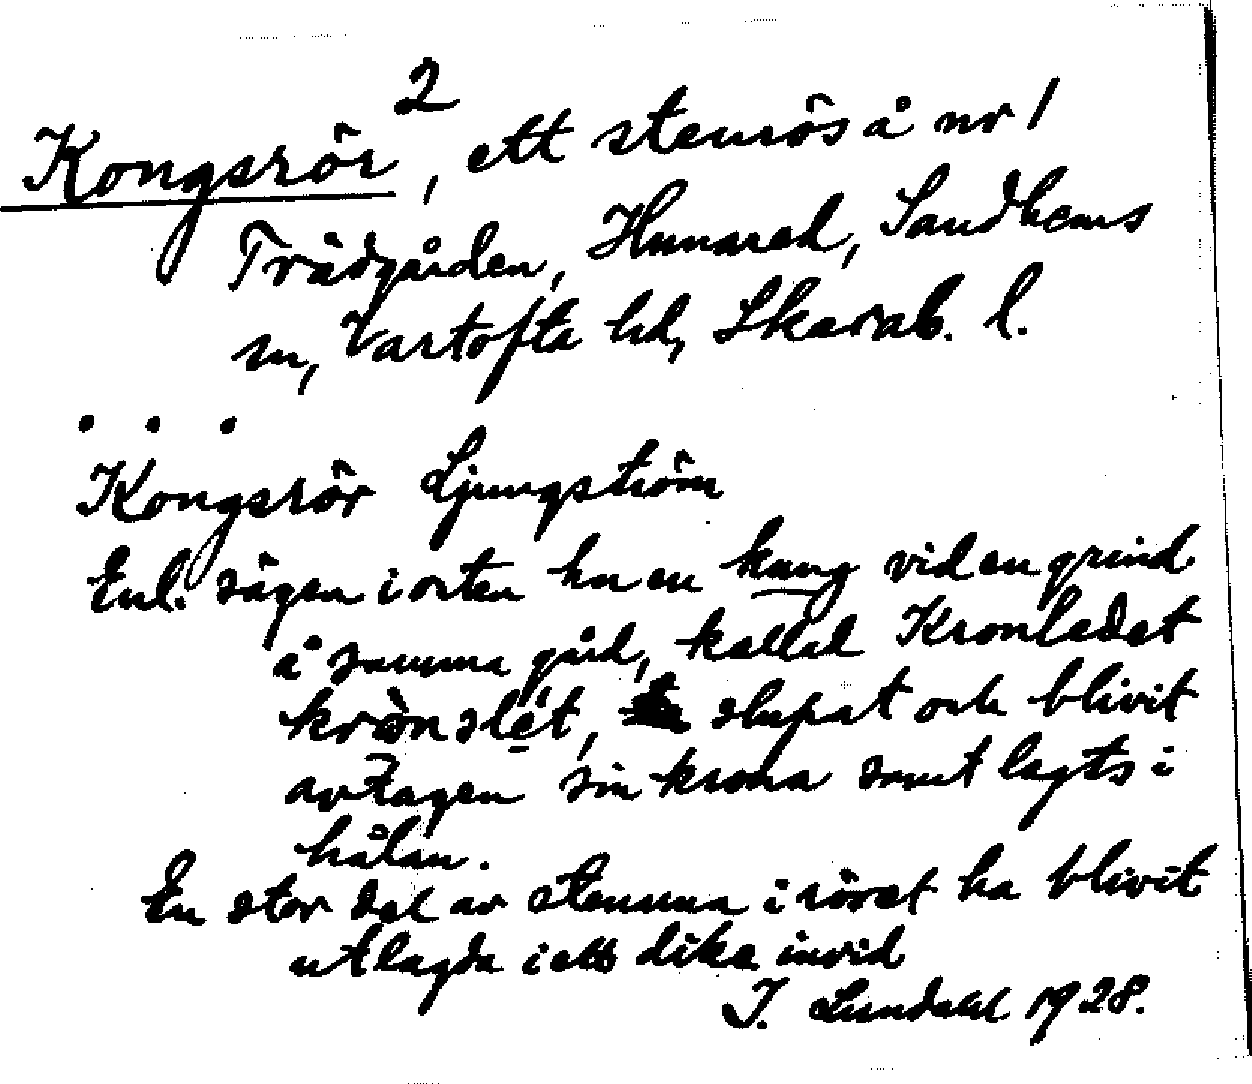 2
Kongsrör, ett stenrös å nr 1
Trädgården, Hunared, Sandhems
sn, Vartofta hd, Skarab. l.
. . .
Kongsrör Ljungström
Enl. sägen i orten har en kung vid en grind
å samma gård, kallad Kronledet
slupat och blivit
avtagen sin krona samt lagts i
hålan.
En stor del av stenarna i röset ha blivit
utlagda i ett dike invid
I. Lundahl 1928.